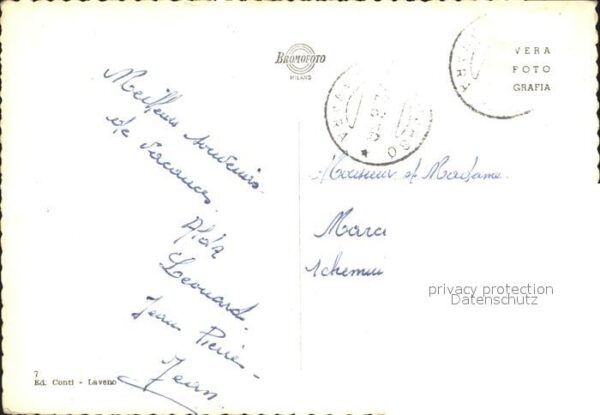 BROMOFOTO
MILANO
VERA
FOTO
GRAFIA
Meilleurs souvenirs
de vacances
Léonard.
Jean Pierre -
Jean
Monsieur et Madame
Marc
privacy protection
Datenschutz
7
Ed. Conti - Laveno